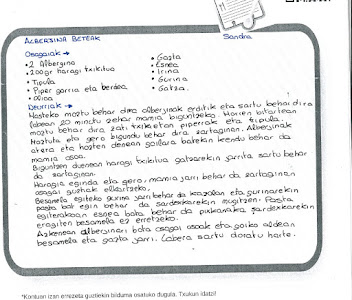 ALBERJINA BETEAK
Sandra
Osagaiak →
• 2 Alberjina
• 200gr haragi txikituo
• Tipula
• Piper gorria eta berdea
• Olioa
• Gazta
• Esnea
• Irina
• Gurina
• Gatza.
→
Hasteko moztu behar dira alberjinak erditik eta sartu behar dira
labean 20 minutu zehar mamia biguntzeko. Horren bitartean
moztu behar dira zati txikietan piperrak eta tipula.
Moztuta eta gero bigundu behar dira zartaginan. Alberjinak
atera eta hozten denean goilara batekin kendu behar da
mamia osoa.
Biguntzen duenean haragi txikitua gatzarekin jarrita sartu behar
da zartaginan.
Haragia eginda eta gero, mamia jarri behar da zartaginan
osagai guztiak
Besamela egiteko gurina jarri behar da kazolan eta gurinarekin
pasta bat egin behar da sardexkarekin mugitzen. Pasta
egiterakoan, esnea bota behar da pixkanaka sardexkarekin
eragiten besamela ez erretzeko.
Azkenean alberjinari bota osagai osoak eta goiko aldean
besamela eta gazta jarri. Labera sartu doratu harte.
*Kontuan izan errezeta guztiekin bilduma osatuko dugula. Txukun idatzi!